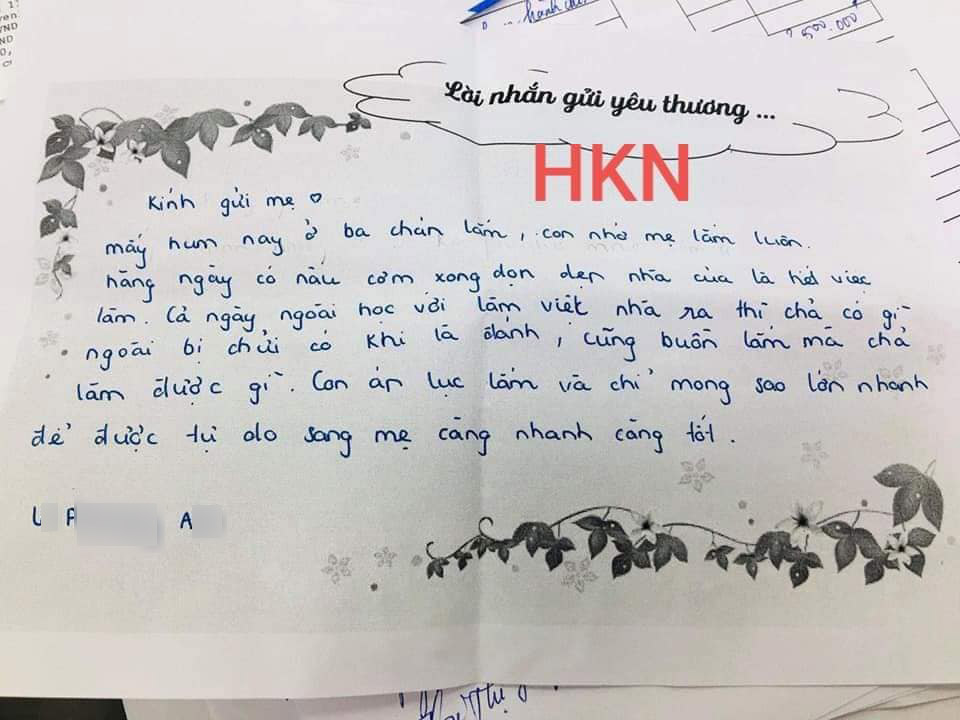 500.000đ
Lời nhắn gửi yêu thương ...
HKN
Kính gửi mẹ ♡
mấy hum nay ở ba chán lắm, con nhớ mẹ lắm luôn.
hằng ngày có nấu cơm xong dọn dẹp nhà cửa là hết việc
làm. Cả ngày ngoài học với làm việt nhà ra thì chả có gì
ngoài bị chửi có khi là đánh, cũng buồn lắm mà chả
làm được gì. Con áp lực lắm và chỉ mong sao lớn nhanh
để được tự do sang mẹ càng nhanh càng tốt.
L A